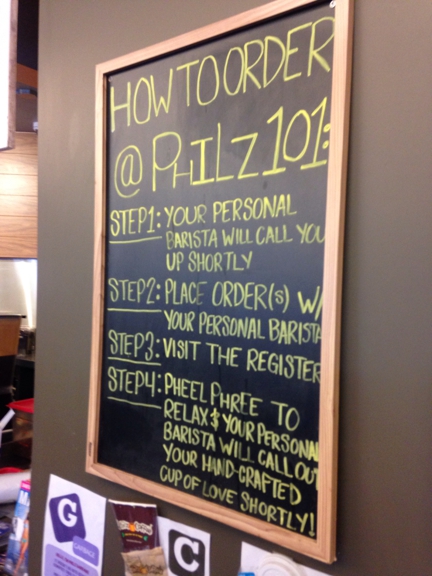 HOW TO ORDER
@ PHILZ 101:
STEP1: YOUR PERSONAL
BARISTA WILL CALL YOU
UP SHORTLY
STEP2: PLACE ORDER(S) W/
YOUR PERSONAL BARISTA
STEP3: VISIT THE REGISTER
STEP4: PHEEL PHREE TO
RELAX & YOUR PERSONAL
BARISTA WILL CALL OUT
YOUR HAND-CRAFTED
CUP OF LOVE SHORTLY!
G
GARBAGE
C